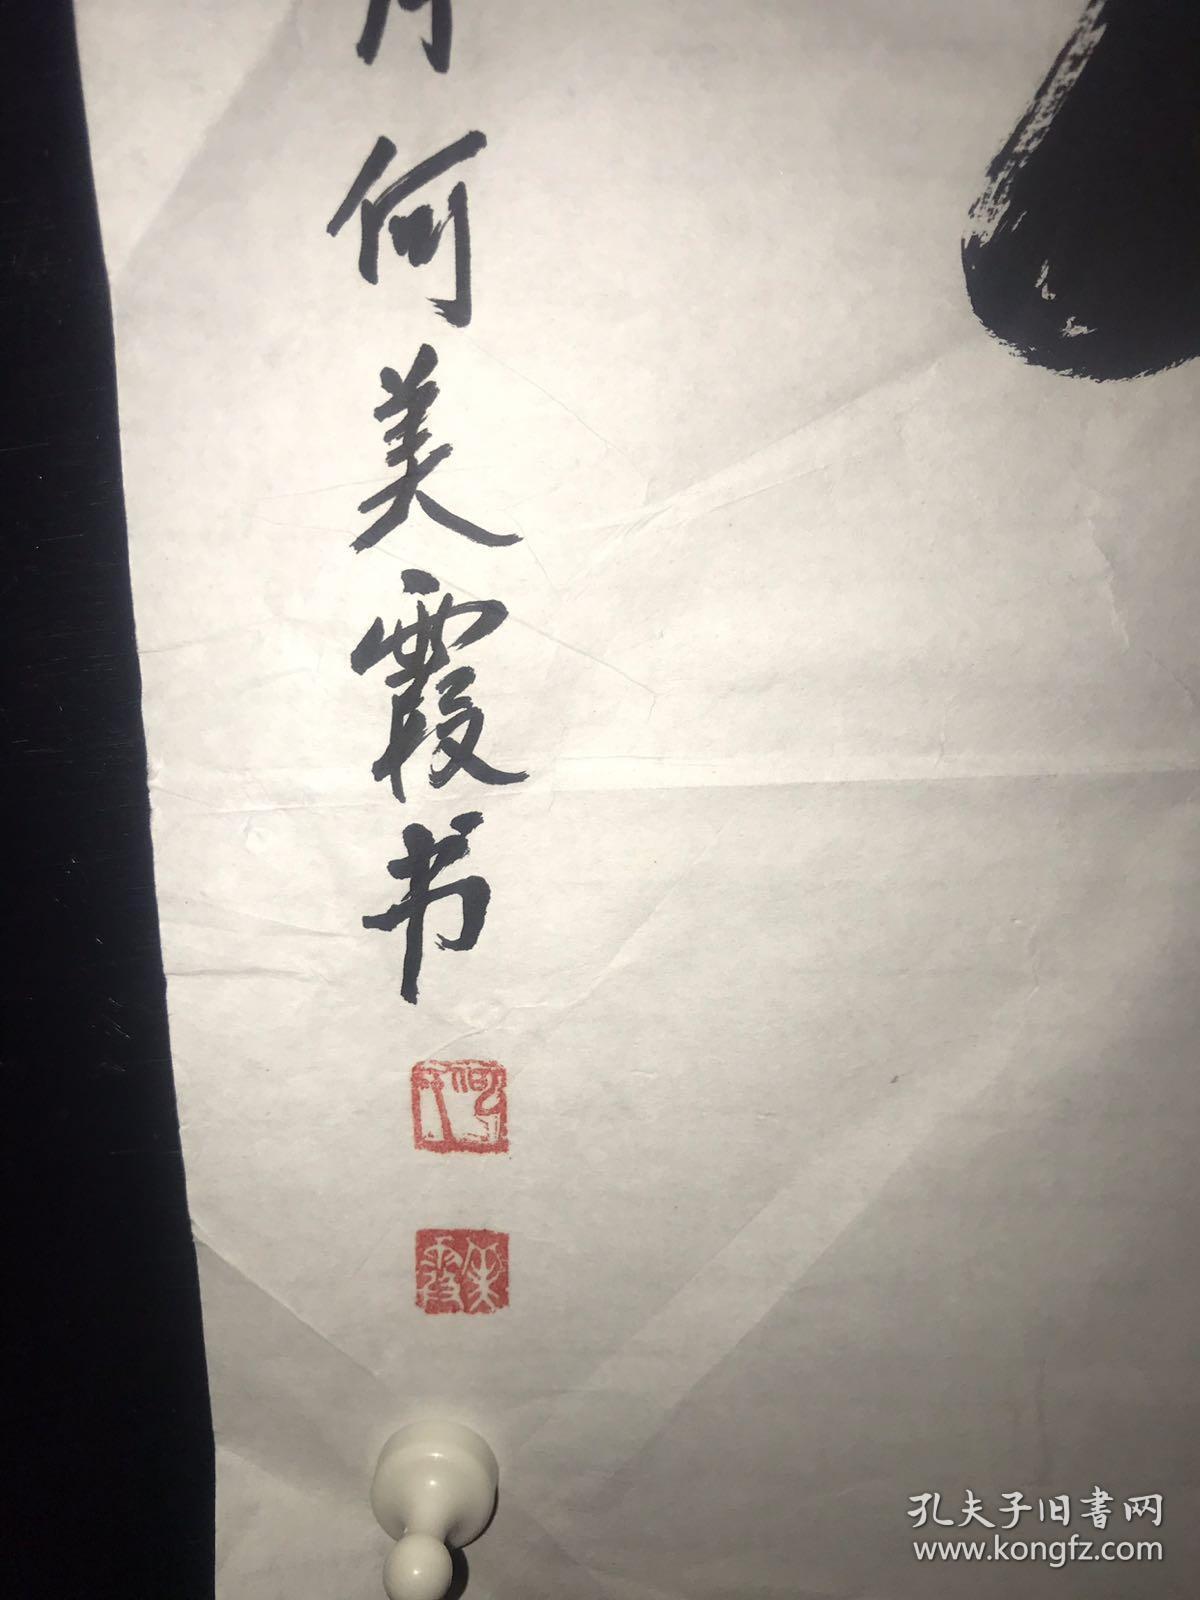 何美霞书
何
美霞
孔夫子旧書网
www.kongfz.com